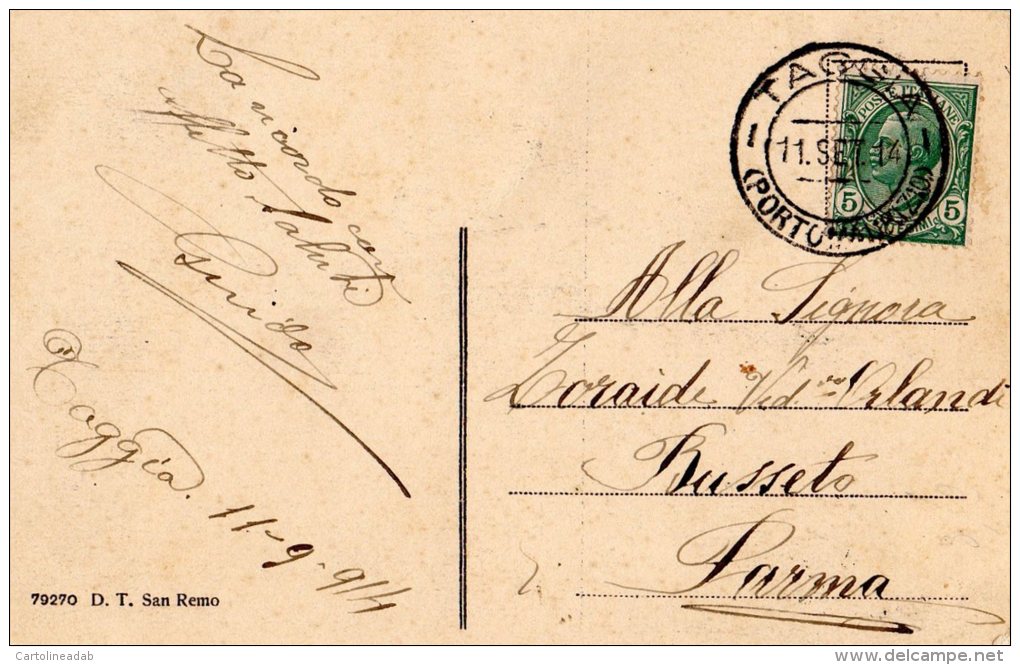 La ricordo con
affetto. Saluti
Guido
Taggia. 11-9-914
79270 D. T. San Remo
TAGGIA
11.SET.14
(PORTO MAURIZIO)
POSTE ITALIANE
5 5
Alla Signora
Zoraide Ved.va Orlandi
Busseto
Parma
Cartolineadab
delcampe.net